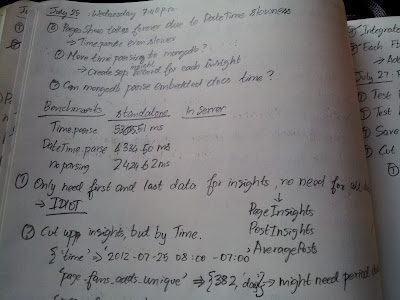 July 25 : Wednesday 7:40pm
Pages Show takes forever due to DateTime slowness
→ Time.parse even slower
② Move time parsing to mongodb?
→ Create sep insight for each insight
③ Can mongodb parse embedded docs time?
Benchmarks standalone In Server
Time.parse 51 ms
DateTime.parse 50 ms
no parsing 2424.62 ms
① Only need first and last data for insights, no need for
→ IDIOT
↓
PageInsights
PostInsights
AveragePosts
② Cut up insights, but by Time.
{'time' → 2012-07-25 08:00 -07:00',
'page_fans_adds_unique' ⇒ {382, 'day'} → might need period
Integrate
② Each
→ Add
July 27 :
① Test
② Test
③ Save
④ Cut